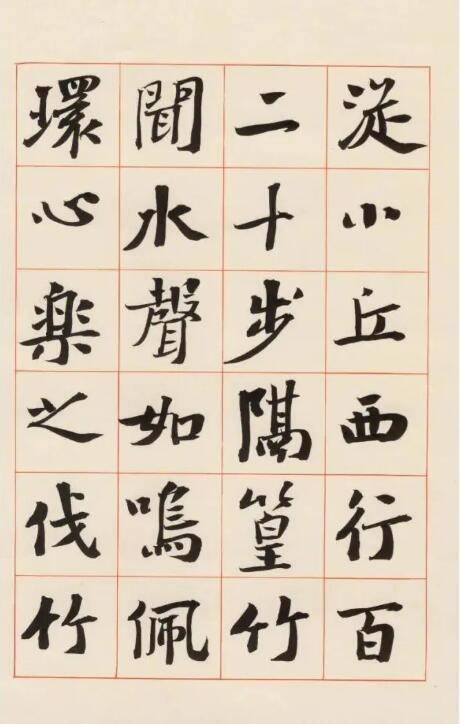 淀小丘西行百
二十步隔篁竹
聞水聲如鳴佩
環心楽之伐竹